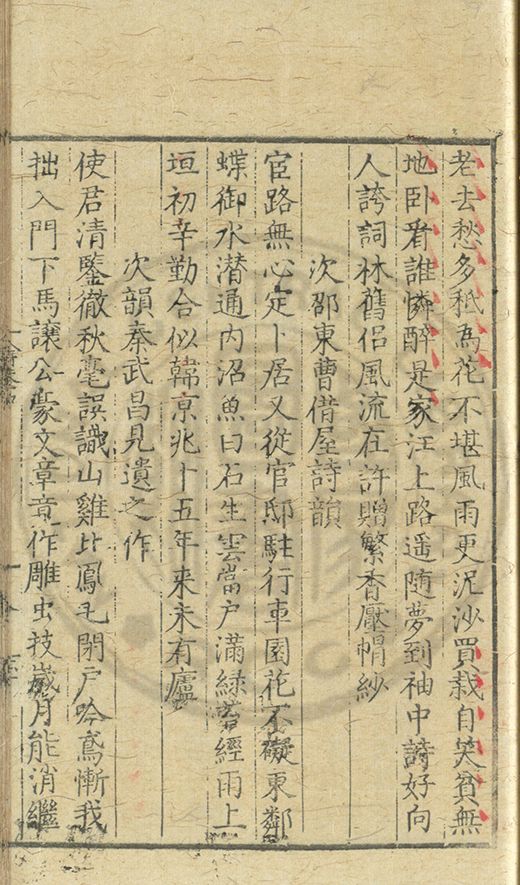 老去愁多秪為花不堪風雨更泥沙買栽自笑貧無
地卧看誰憐醉是家江上路遥随夢到袖中詩好向
人誇詞林舊侣風流在許贈繁香壓帽紗
次邵東曹借屋詩韻
宦路無心定卜居又從官邸駐行車園花不礙東鄰
蝶御水潜通内沼魚白石生雲當户满緑苔經雨上
垣初辛勤合似韓京兆十五年来未有廬
次韻秦武昌見遺之作
使君清鑒徹秋毫誤識山雞比鳳毛閉户吟鳶慚我
拙入門下馬讓公豪文章竟作雕虫技歲月能消繼